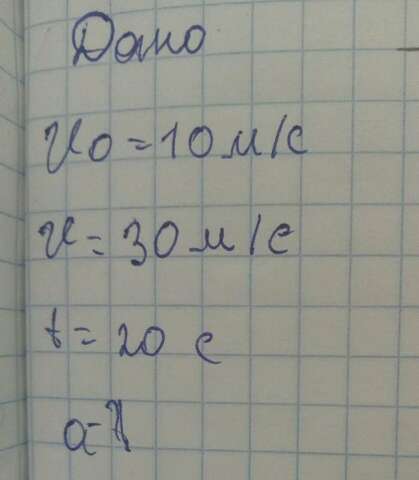 Дано
υ0=10м/с
υ=30м/с
t=20 с
a-?